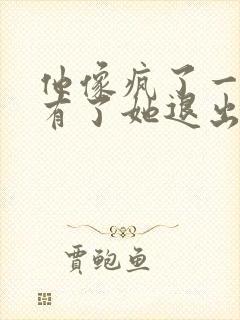 他像疯了一
有了她退出
贾鲍鱼